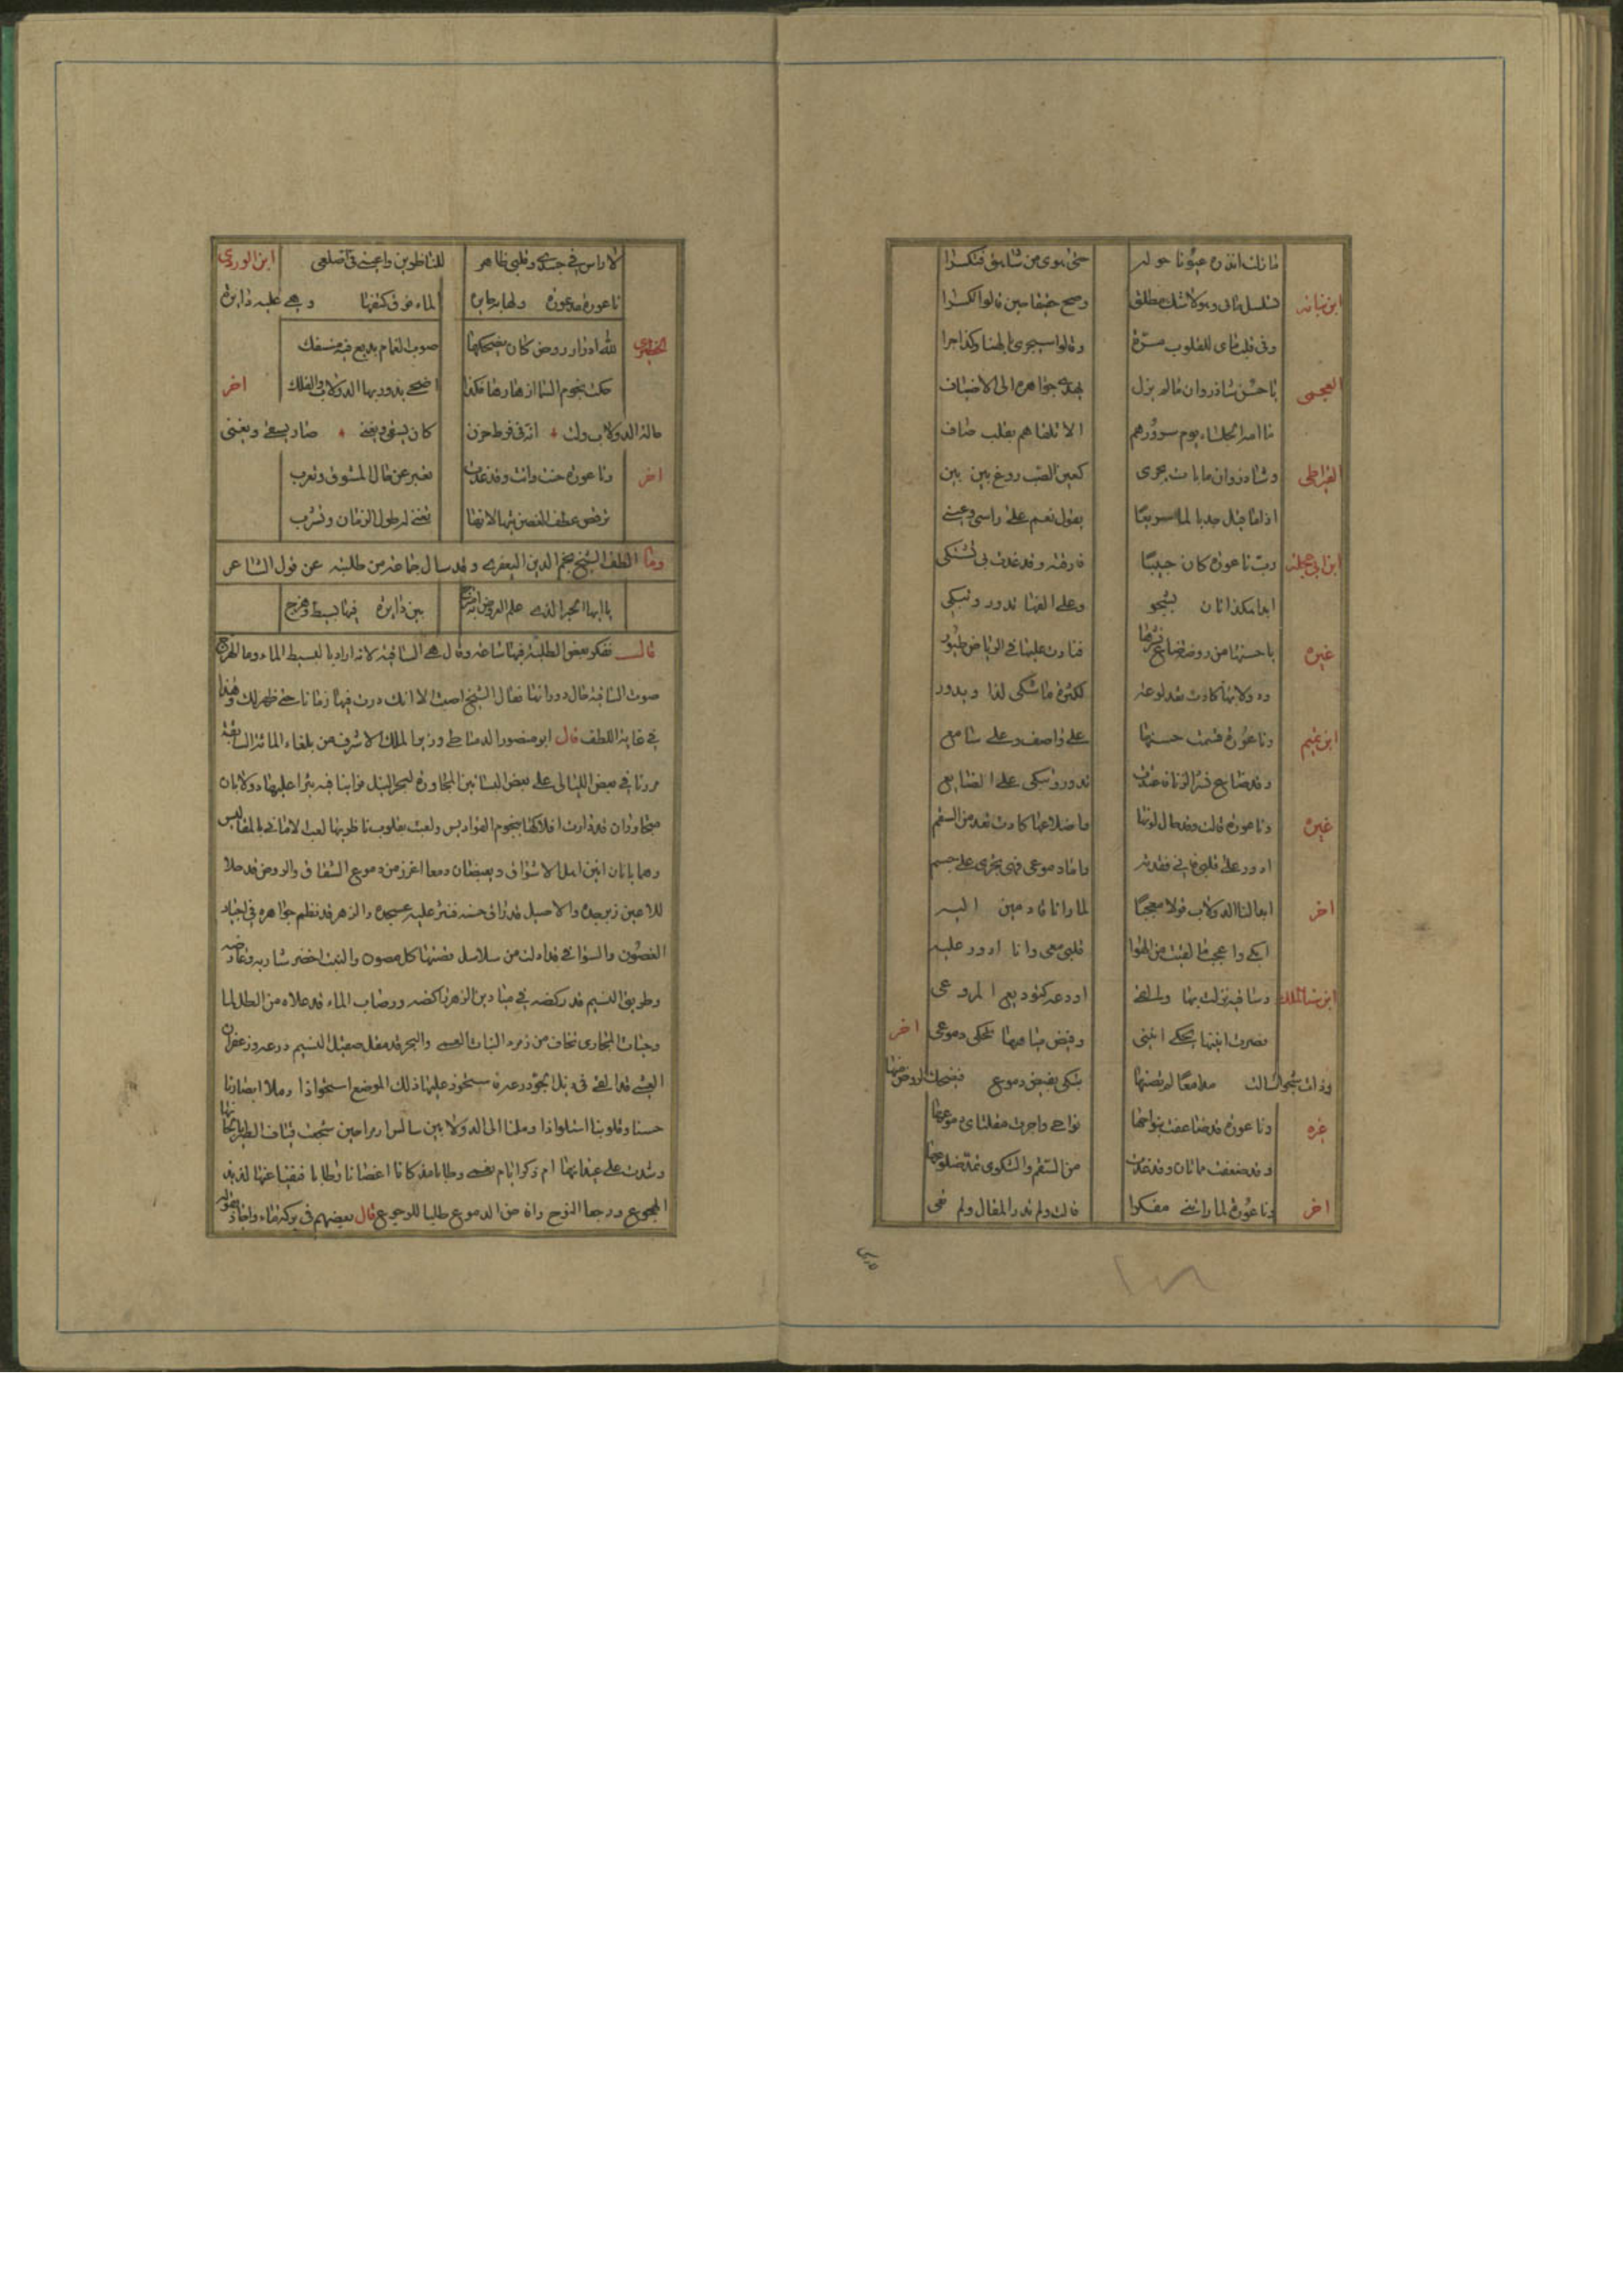 ما زلت انذره عيونا حوله حتى هوى من شاهق فتكسرا
ابن نباته وهو لا شك مطلق وصح حين قالوا تكسرا
وفى للقلوب مسرة وقالوا سيجرى بالهنا وكذا جرا
العجمى يا حسن شاذروان ما لم يزل يهدى جواهره الى الاضياف
يوم سرورهم الا تلقاهم بقلب صاف
القيراطى وشاذروان ماء بات يجرى كعين الصب روع بين بين
اذا ما قيل يقول نعم على راسى وعينى
ابن ابى حجله رب ناعورة كان حبيبا فارقته وقد غدت لى تشتكى
ابدا هكذا بشجو وعلى الفها تدور وتبكى
غيره يا حسنها من روضة ضاع نشرها فنادت عليه فى الرياض طيور
ودولابها كادت تعد ضلوعه لكثرة ما يشكى لغا ويدور
ابن تميم وناعورة قسمت حسنها على واصف وعلى سامع
وقد ضاع نشر الربا فاغتدت تدور وتبكى على الضايع
غيره وناعورة قالت وقد حال لونها واضلاعها كادت تعد من السقم
ادور على قلبى فانى فقدته واما دموعى فهى تجرى على جسمى
اخر ابدا لنا الدولاب قولا معجبا لما رانا قادمين اليه
ابكى واعجب ما لقيت من الهوا قلبى معى وانا ادور عليه
ابن سنا الملك وساقية نزلت بها
انينها يحكى انينى وفيض مياهها تحكى دموعى اخر
وذات شجو اسالت مدامعا لم تصنها تبكى بفيض دموع فيضحك الروض منها
غيره وناعورة قد ضاعفت بنواحها نواحى واجرت مقلتاى دموعها
وقد ضعفت مما تان وقد غدت من السقم والشكوى تعد ضلوعها
اخر وناعورة لما راتنى مفكرا قالت ولم تدر المقال ولم تعى
لا راس فى جسدى وقلبى ظاهر للناظرين واعينى فى اضلعى ابن الوردى
ناعورة مذعورة ولهانة حايره الماء فوق كتفها وهى عليه دايره
لله روض كان يضحكها صوب الغمام بديع فيه منسفك
حكت نجوم السما ازهارها فلذا اضحى يدور بها الدولاب والفلك اخر
حالة الدولاب دلت انه فى فرط حزن كان يسقى ويغنى صار يسقى ويغنى
اخر وناعورة حنت وانت وقد غدت تعبر عن حال المشوق وتعرب
ترقص عطف الغصن تيها لانها تغنى له طول الزمان وتشرب
وما الطف الشيخ نجم الدين وقد سال جماعة من طلبته عن قول الشاعر
يا ايها الحبر الذى علم العروض به امتزج بين دايرة فيها بسيط وهزج
قال ففكر بعض الطلبة فيها ساعة وقال هى الساقية لانه اراد بالبسيط الماء وبالهزج
صوت الساقية حال دورانها فقال الشيخ اصبت الا انك درت فيها زمانا حتى ظهر لك وهذا
فى غاية اللطف قال ابو منصور الدمياطى وزير الملك الاشرف من بلغاء المائة السابعة
مررنا فى بعض الليالى على بعض البساتين المجاورة لبحر النيل فراينا فيه بئرا عليها دولابان
متحاوران قد دارت افلاكهما بنجوم القواديس ولعبت بقلوب ناظريها لعب الامانى بالمفاليس
وهما يانان انين اهل الاشواق ويفيضان دمعا اغزر من دموع العشاق والروض قد جلا
للاعين زبرجده والاصيل قد راق حسنه فنثر عليه عسجده والزهر قد نظم جواهره فى اجياد
الغصون والسواقى قد اذالت من سلاسل فضتها كل مصون والنبت اخضر شاربه وعارضه
وطريق النسيم قد ركضه فى ميادين الزهر راكضه ورضاب الماء قد علاه من الطل لما
وحيات المجارى تخاف من زمرد النبات العمى والبحر قد صقل صيقل النسيم درعه وزعفران
العشى قد القى فى ذيل الجو ردعه فاستحوذ علينا ذلك الموضع استحواذا وملا ابصارنا
حسنا وقلوبنا التذاذا وملنا الى الدولابين شاكين ازمرا حين سجعت قيان الطير بالحانها
وشدت على عيدانها ام ذكرا ايام نعما وطابا مذ كانا اغصانا رطابا فنفيا عنها لذيذ
الهجوع ورجعا النوح وافاضا الدموع طلبا للرجوع قال بعضهم فى بركة ماء واجاد بقوله